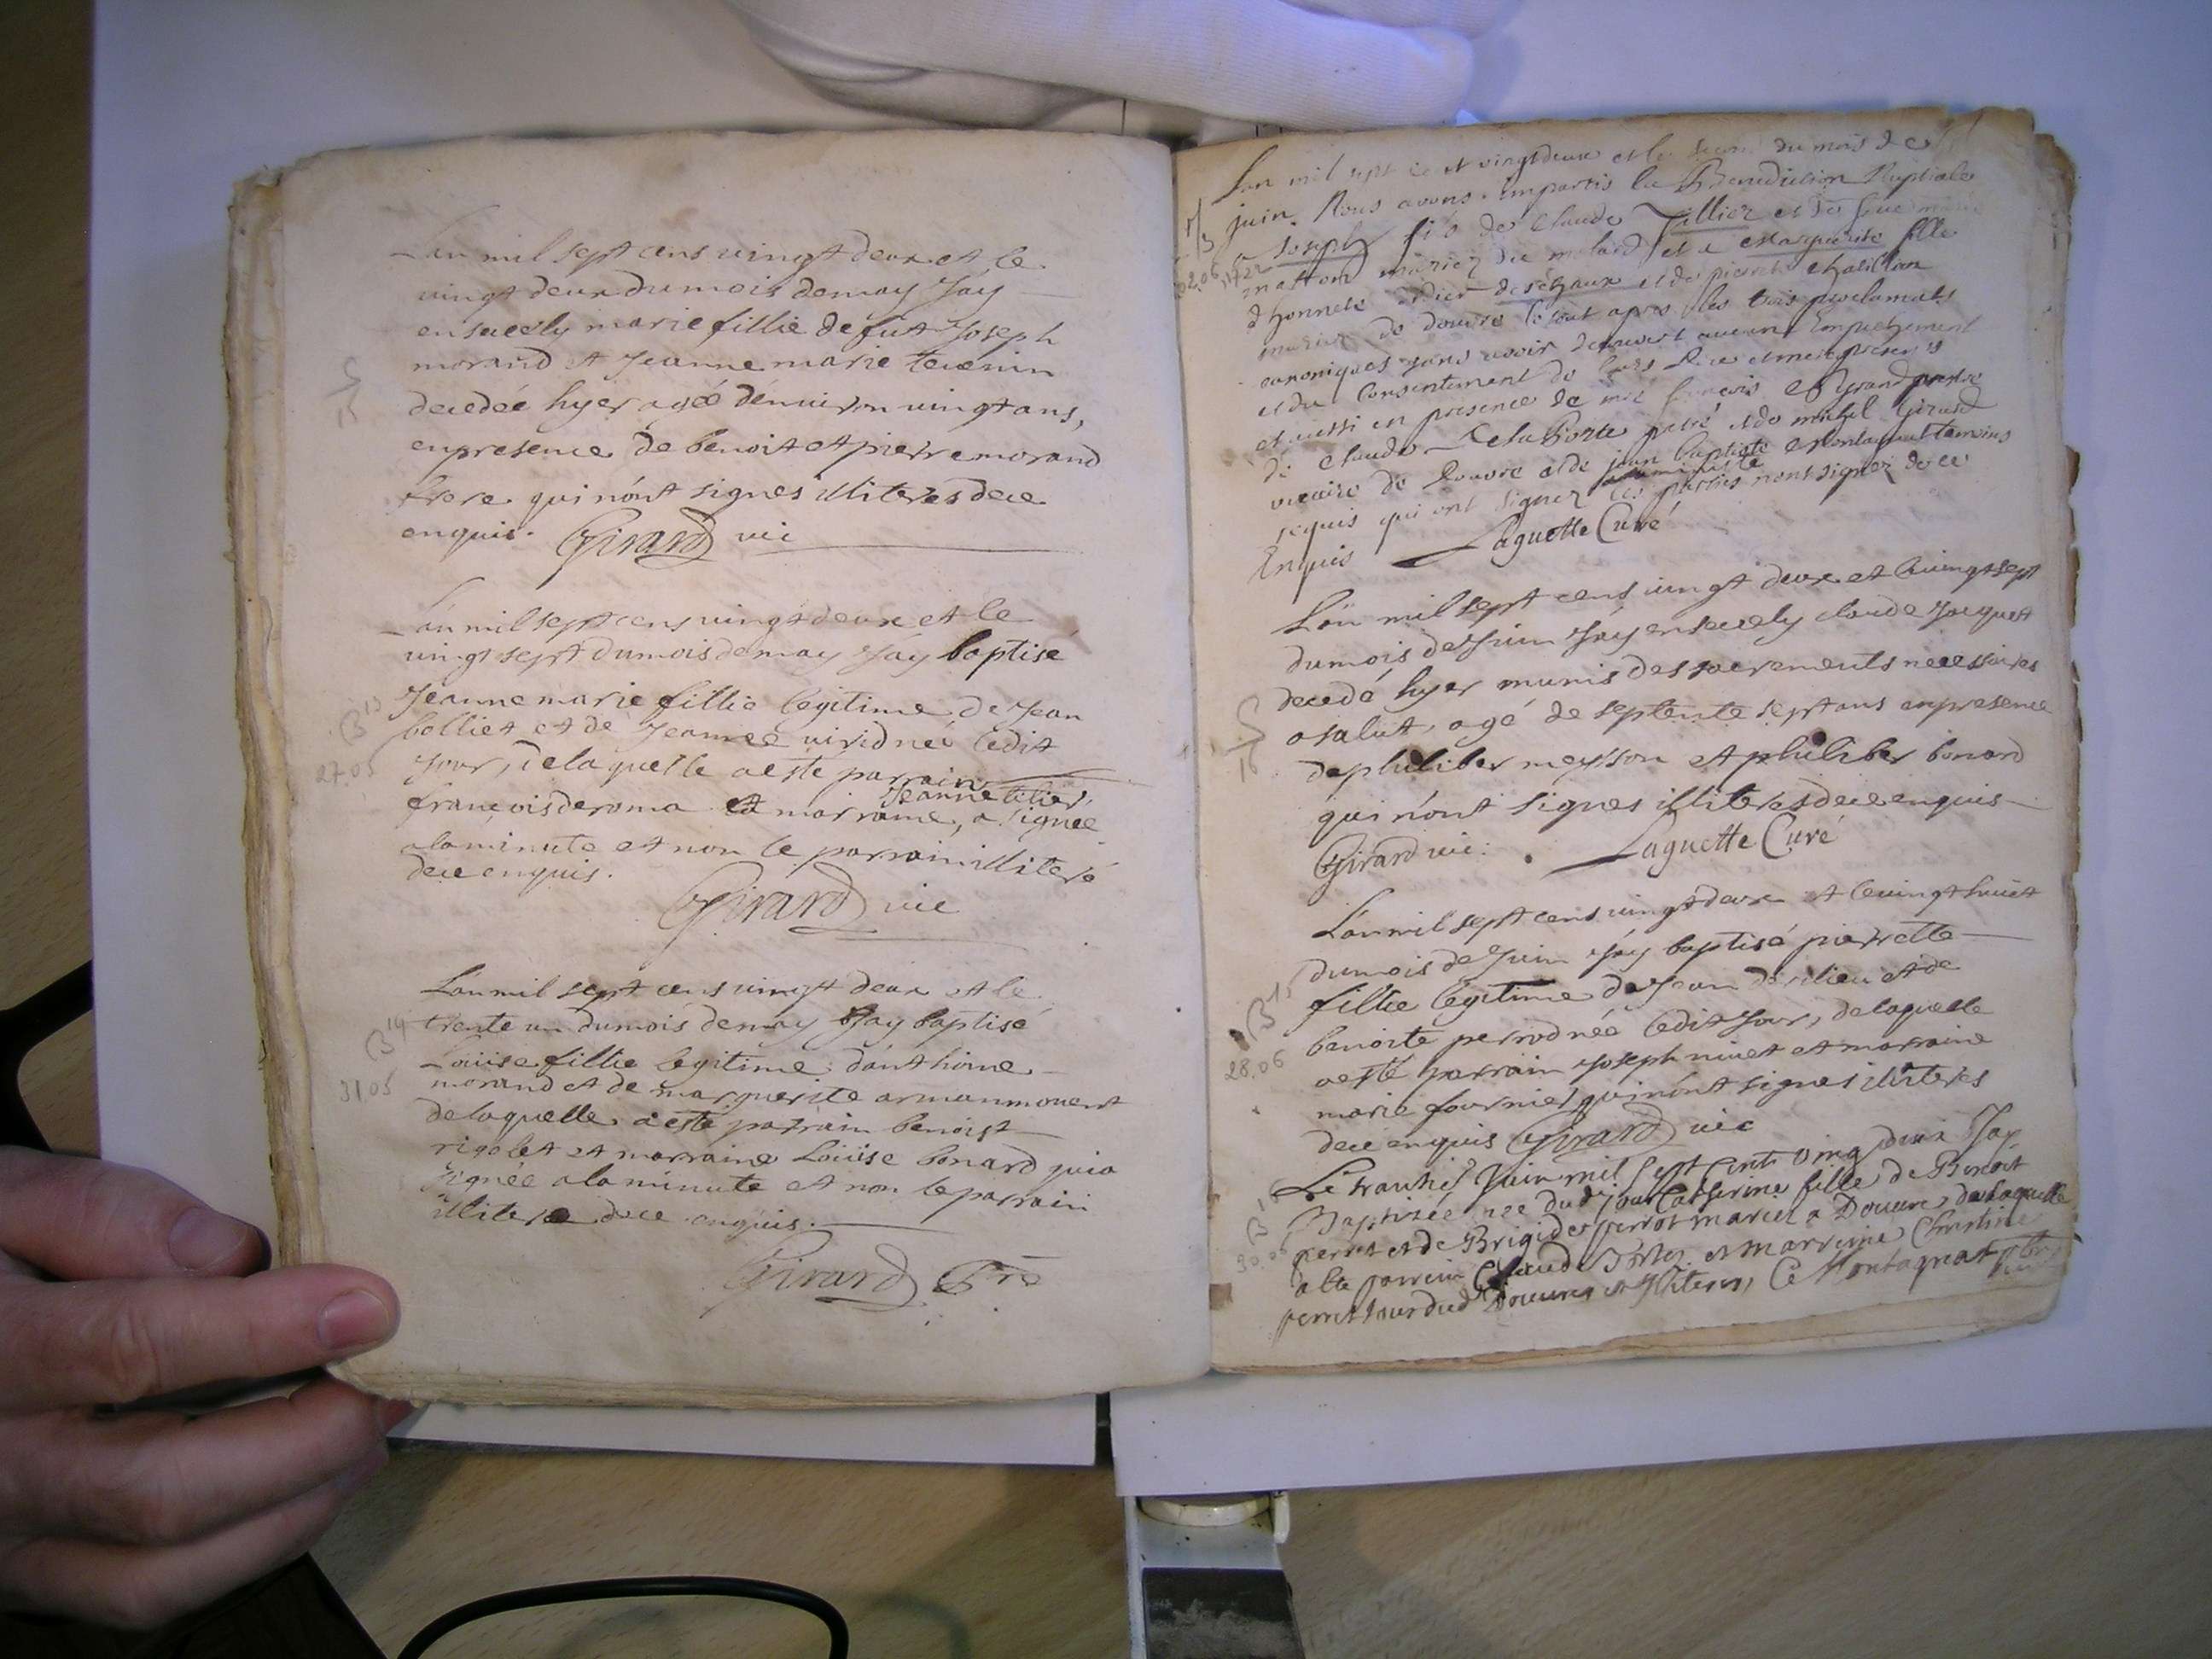 L'an mil sept cens vingt deux et le
vingt deux du mois de may j'ay
ensevely marie fillie de fut Joseph
morand et Jeanne marie tevenin
decedéé hyer agéé d'environ vingt ans,
en presence de benoit et pierre morand
frere qui n'ont signes illiteres de ce
enquis. Girard vic
S
15
L'an mil sept cens vingt deux et le
vingt sept du mois de may j'ay baptisé
Jeanne marie fillie legitime de Jean
bolliet et de Jeanne néé ledit
jour, de laquelle a esté parrain
Jeanne
françois deroma et marraine, a signéé
a la minute et non le parrain illiteré
de ce enquis.
Girard vic
B 13
27.05
L'an mil sept cens vingt deux et le
trente un du mois de may j'ay baptisé
Loüise fillie legitime d'anthoine
morand et de marguerite
de laquelle a esté parrain benoist
rigolet et marraine Loüise bonard qui a
signéé a la minute et non le parrain
illiteré de ce enquis.
Girard
B 14
31.05
L'an mil sept et vingt deux et le du mois de
juin. Nous avons impartis la Benediction Nuptiale
a Joseph fils de Claude Tillier et de
et a Marguerite fille
d'honnete deschaux et de pierrette
de douvre le tout apres les trois proclamats
canoniques sans avoir decouvert aucun Empechement
et du Consentement de leurs
et aussi en presence de
de Claude Delaporte et de michel Girard
vicaire de Douvre et de jean baptiste Montagnat temoins
requis qui ont signez a la minute les parties n'ont signez de ce
Enquis Laguette Curé
M
3
02.06.1722
L'an mil sept cens vingt deux et le vingt sept
du mois de Juin j'ay ensevely claude Jacquet
decedé hyer munis des sacrements necessaires
a salut, agé de septente sept ans en presence
de philiber meysson et philiber bonard
qui n'ont signes illiteres de ce enquis
Girard vic: Laguette Curé
S
16
L'an mil sept cens vingt deux et le vingt huict
du mois de Juin j'ay baptisé pierrette
fillie legitime de Jean derilieu et de
benoite perrod néé ledit jour, de laquelle
a esté parrain Joseph nivet et marraine
marie fournier qui n'ont signes illiteres
de ce enquis Girard vic
B 15
28.06
Le trantie Juin mil sept cents vingt deux Jay
Baptisée née dud jour Catherine fille de Benoit
perret et de Brigide perrot mariez a Douvre, de laquelle
a ete parrein Claude et marreine Christine
perret dud Douvre illiteres, Ce Montagnat
B 16
30.06